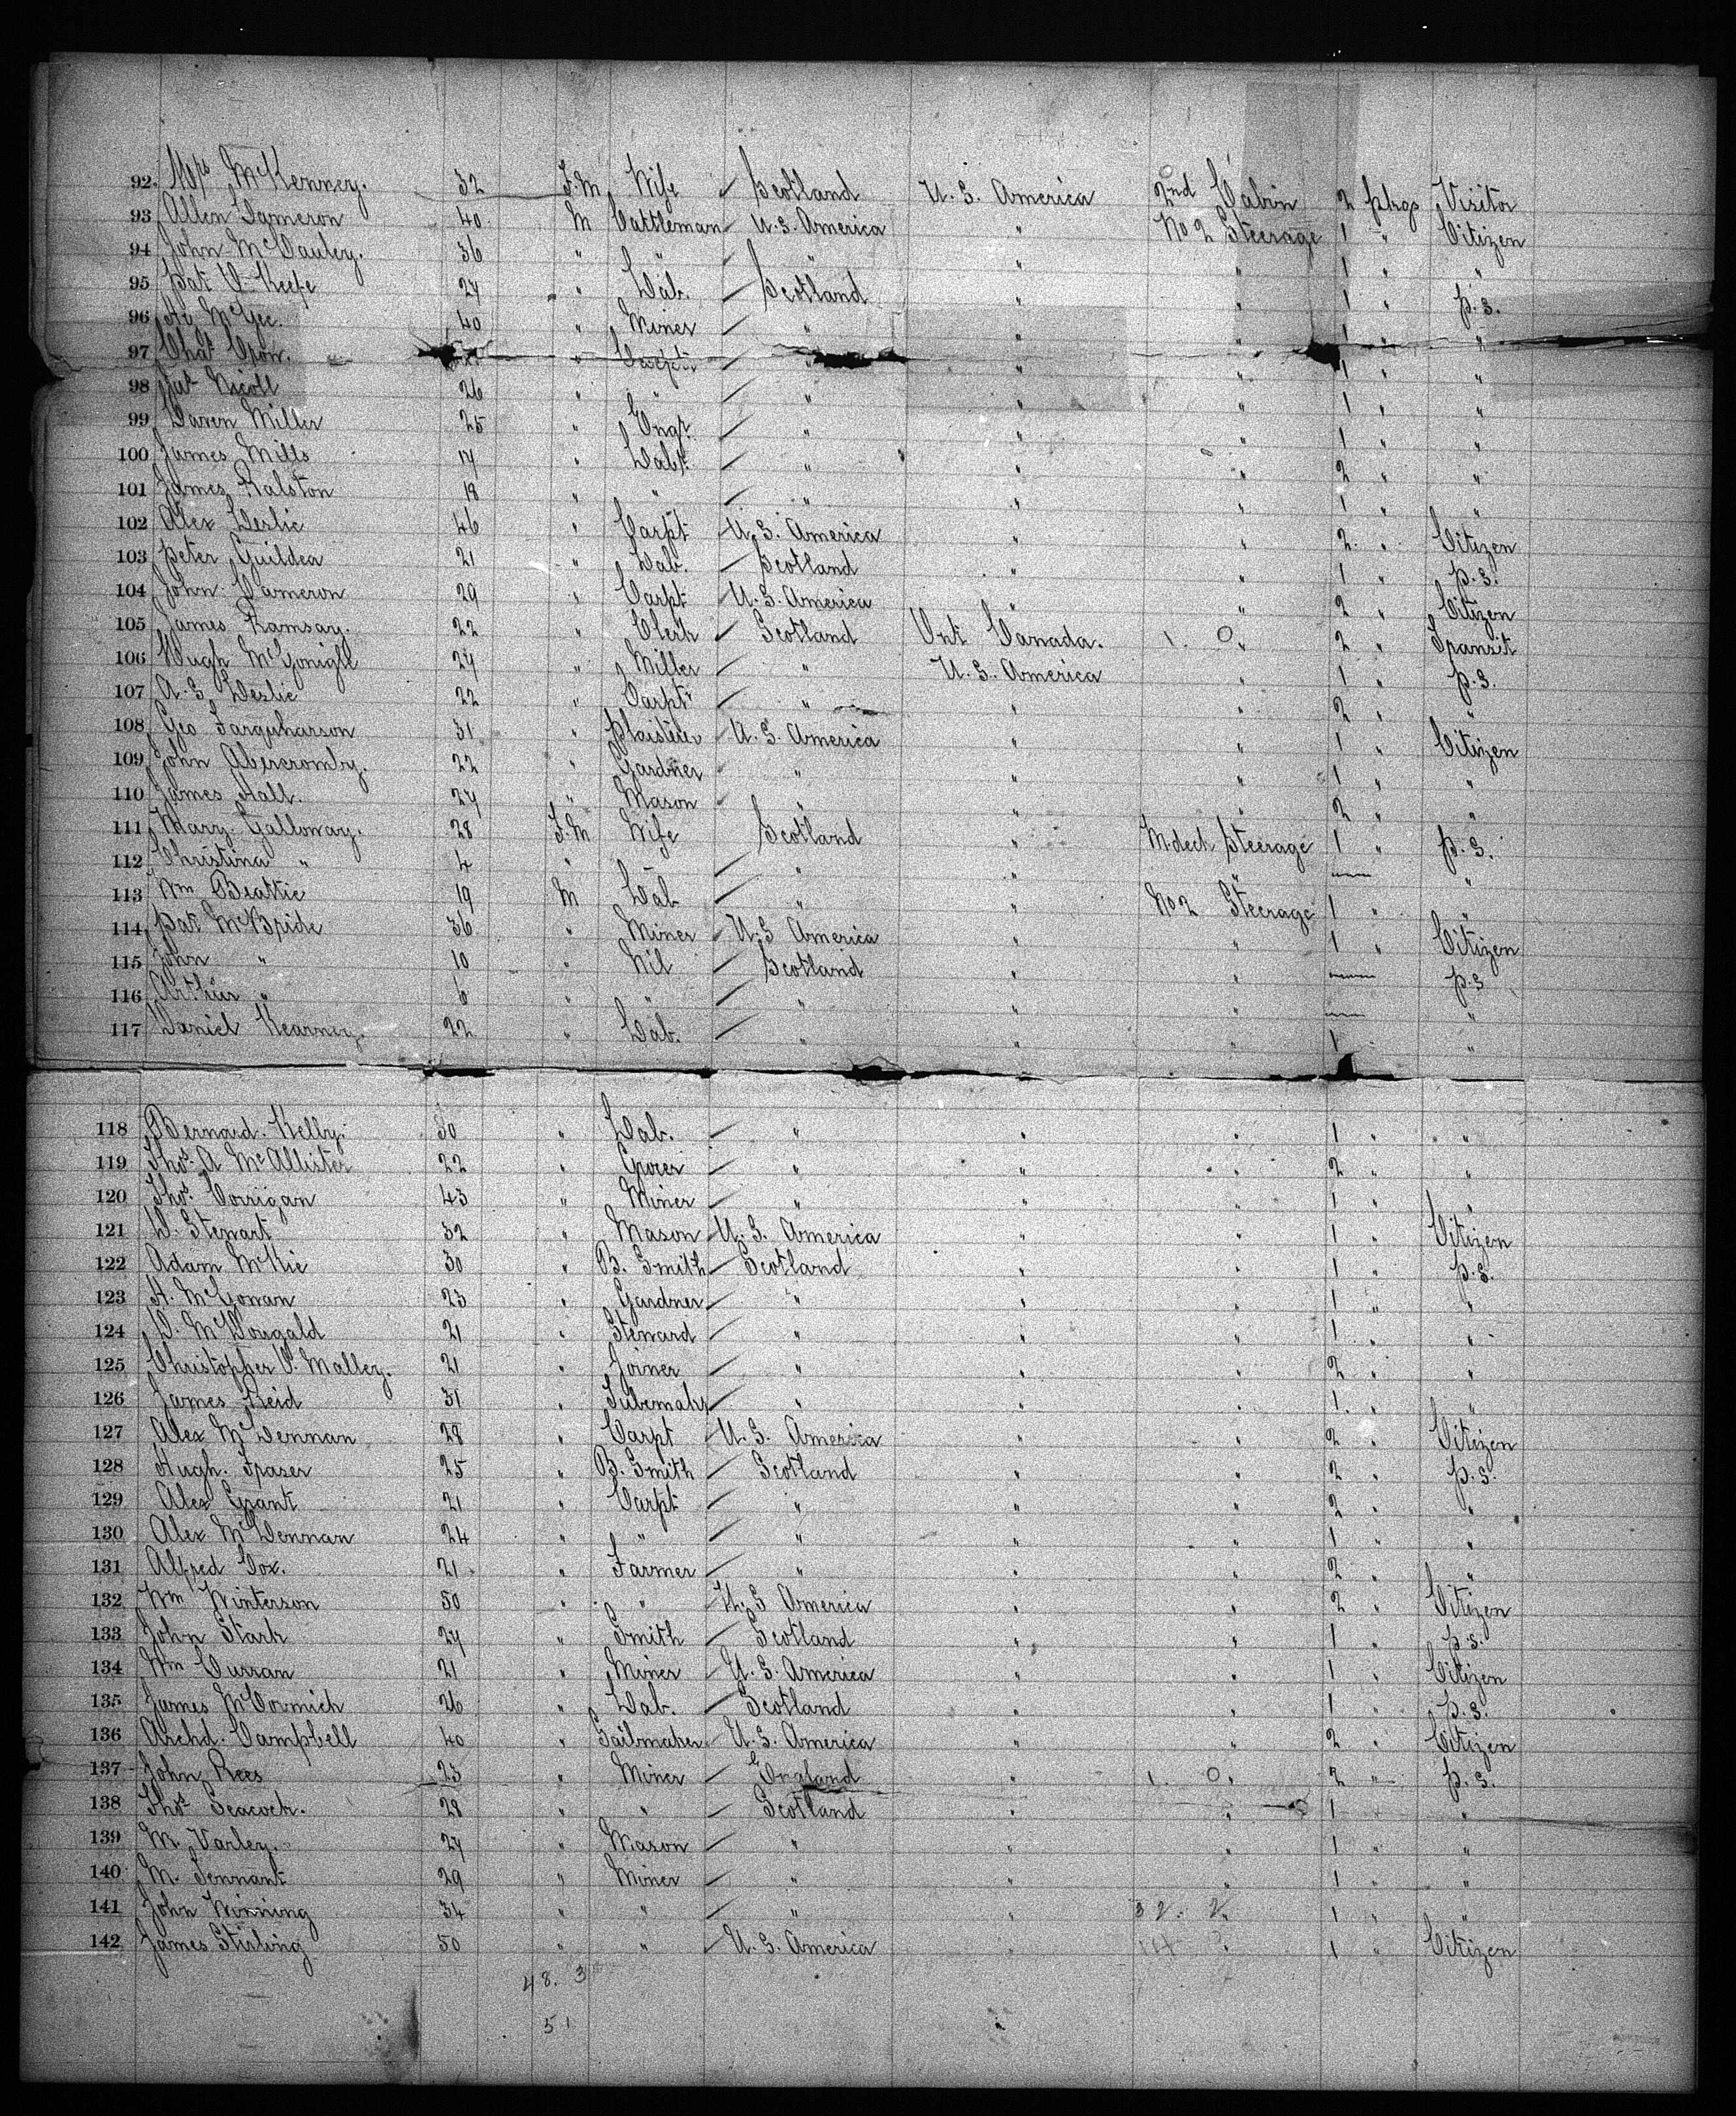 92. Mrs McKenney. 32 F.M Wife Scotland U.S. America 2nd Cabin 2 pkgs Visitor
93 Allen Cameron 40 M Cattleman U.S. America " No 2 Steerage 1 " Citizen
94 John McCauley. 36 " " " " " 1 " "
95 Pat O'Keefe 27 " Lab. Scotland " " 1 " P.S.
96 McGee. 40 " Miner " " " 1 " "
97 " Carpt " " " 1 " "
98 Nicoll 26 " " " " " 1 " "
99 Miller 25 " Engr. " " " 1 " "
100 James Mills 17 " Labr. " " " 2 " "
101 James Ralston 18 " " " " " 1 " "
102 Alex Leslie 46 " Carpt U.S. America " " 2 " Citizen
103 Peter Guildea 21 " Lab. Scotland " " 1 " P.S.
104 John Cameron 29 " Carpt U.S. America " " 2 " Citizen
105 James Ramsay. 22 " Clerk Scotland Ont Canada. 1. 0 " 2 " Transit
106 Hugh McGonigle 27 " Miller " U.S. America " 1 " P.S.
107 A.S. Leslie 22 " Carptr " " " 2 " "
108 Geo Farquharson 31 " Plaisterer U.S. America " " 1 " Citizen
109 John Abercromby. 22 " Gardner " " " 1 " "
110 James Hall. 27 " Mason " " " 2 " "
111 Mary Galloway. 28 F.M Wife Scotland " M.deck Steerage 1 " P.S.
112 Christina " 4 " " " " " — "
113 Wm Beattie 19 M Lab " " No 2 Steerage 1 " "
114 Pat McBride 36 " Miner U.S America " " 1 " Citizen
115 John " 10 " Nil Scotland " " — P.S
116 Arthur " 6 " " " " " — "
117 Daniel Kearney. 22 " Lab. " " " 1 "
118 Bernard Kelly. 30 " Lab. " " " 1 " "
119 Thos. A McAllister 22 " Grocer " " " 2 " "
120 Thos. Corrigan 43 " Miner " " " 1 " "
121 D. Stewart 32 " Mason U.S. America " " 1 " Citizen
122 Adam McKie 30 " B. Smith Scotland " " 1 " P.S.
123 A. McGowan 23 " Gardner " " " 1 " "
124 D. McDougald 21 " Steward " " " 1 " "
125 Christopher O'Malley. 21 " Joiner " " " 2 " "
126 James Reid 31 " Tubemakr " " " 1. " "
127 Alex McLennan 28 " Carpt U.S. America " " 2 " Citizen
128 Hugh. Fraser 25 " B. Smith Scotland " " 2 " P.S.
129 Alex Grant 21 " Carpt " " " 2 " "
130 Alex McLennan 24 " " " " " 1 " "
131 Alfred Cox. 21 " Farmer " " " 2 " "
132 Wm Winterson 50 " " U.S America " " 2 " Citizen
133 John Stark 27 " Smith Scotland " " 1 " P.S.
134 Wm Curran 21 " Miner U.S. America " " 1 " Citizen
135 James McCormick 26 " Lab. Scotland " " 1 " P.S.
136 Archd. Campbell 40 " Sailmaker U.S. America " " 2 " Citizen
137 John Rees 23 " Miner England " 1. 0 " 2 " P.S.
138 Thos. Seacock. 28 " " Scotland " " 1 "
139 M. Varley. 27 " Mason " " " 1 " "
140 M. Tennant 29 " Miner " " " 1 " "
141 John Winning 34 " " " " 32. 2. 1 " "
142 James Stirling 50 " " U.S. America " " 1 " Citizen
48. 3
51